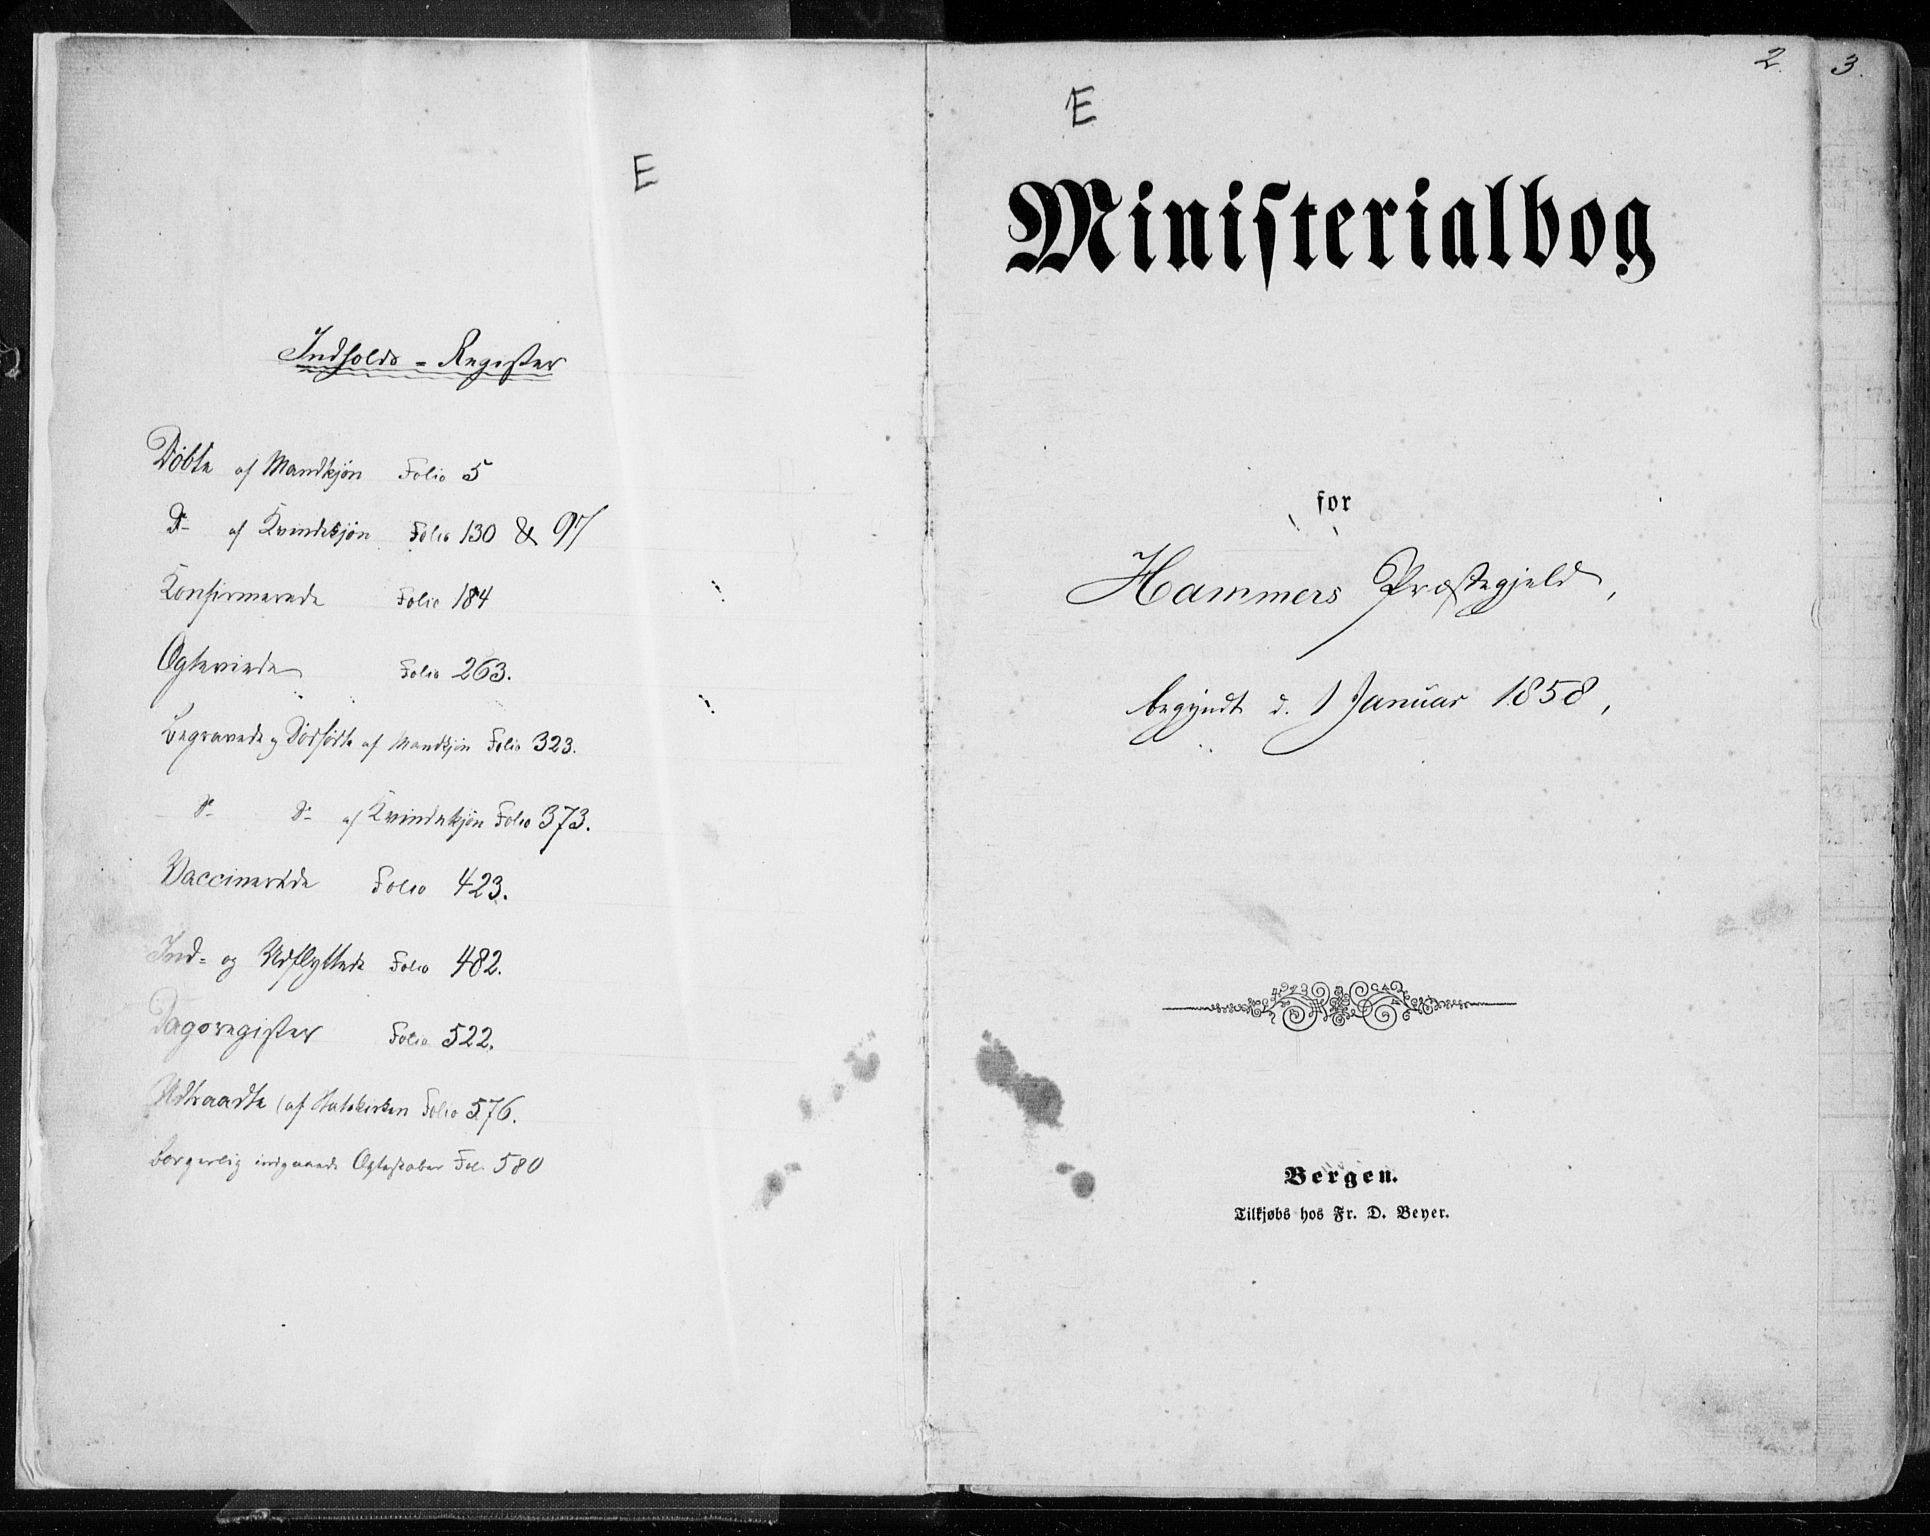 E
Indholds-Register
Døbte af Mandkjøn Folio 5
Do af Kvindekjøn Folio 130 & 97
Konfirmerede Folio 184
Ægteviede Folio 263.
Begravede og Dødfødte af Mandkjøn Folio 323.
Do Do af Kvindekjøn Folio 373.
Vaccinerede Folio 423.
Ind- og Udflyttede Folio 482.
Dagsregister Folio 522.
Udtraadte (af Statskirken Folio 576.
Borgerlig indgaaede Ægteskaber Fol. 580
2. 3.
E
Ministerialbog
for
Hammers Præstegjeld,
begyndt d. 1 Januar 1858,
Bergen.
Tilkjøbs hos Fr. D. Beyer.